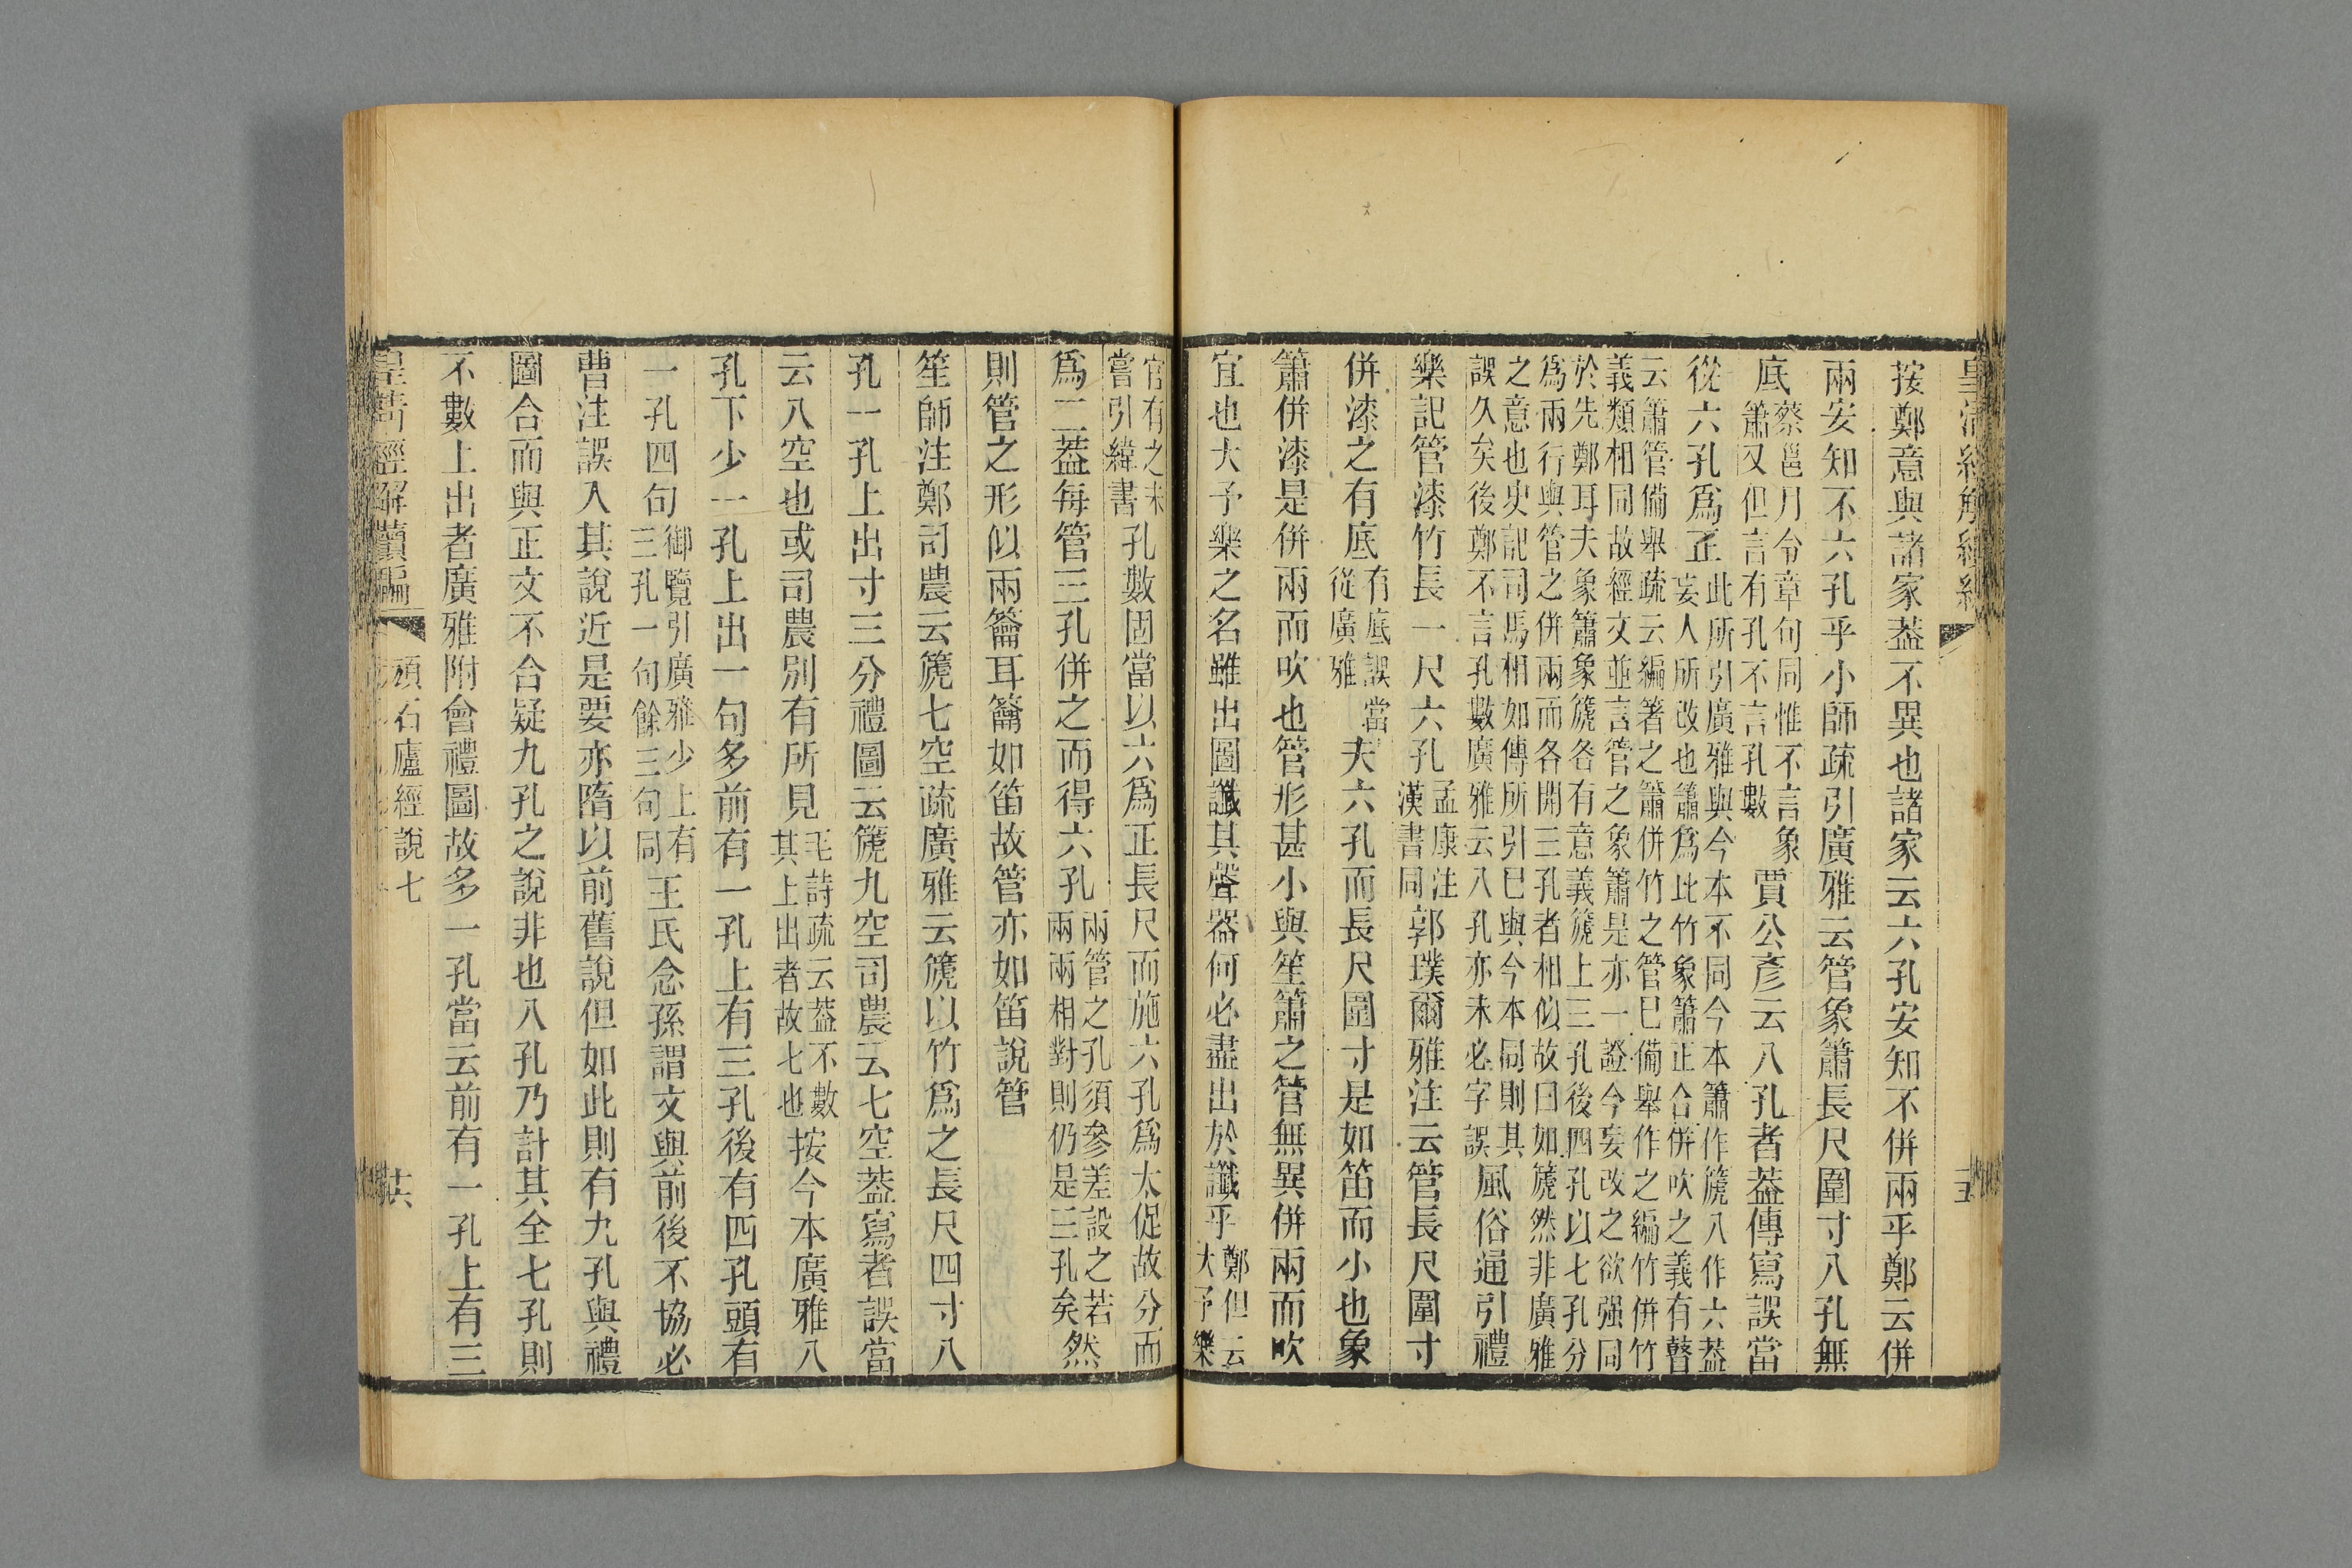 皇清經解續編
按鄭意與諸家葢不異也諸家云六孔安知不併兩乎鄭云併
兩安知不六孔乎小師疏引廣雅云管象簫長尺圍寸八孔無
底蔡邕月令章句同惟不言象簫又但言有孔不言孔數賈公彥云八孔者葢傳寫誤當
從六孔爲正此所引廣雅與今本不同今本簫作篪八作六葢妄人所改也簫爲比竹象簫正合併吹之義有瞽
云簫管備舉疏云編箸之簫併竹之管巳備舉作之編竹併竹義類相同故經文並言管之象簫是亦一證今妄改之欲强同
於先鄭耳夫象簫象篪各有意義篪上三孔後四孔以七孔分爲兩行與管之併兩而各開三孔者相似故曰如篪然非廣雅
之意也史記司馬相如傳所引巳與今本同則其誤久矣後鄭不言孔數廣雅云八孔亦未必字誤風俗通引禮
樂記管漆竹長一尺六孔孟康注漢書同郭璞爾雅注云管長尺圍寸
併漆之有底有底誤當從廣雅夫六孔而長尺圍寸是如笛而小也象
簫併漆是併兩而吹也管形甚小與笙簫之管無異併兩而吹
宜也大予樂之名雖出圖讖其聲器何必盡出於讖乎鄭但云大予樂
官有之未嘗引緯書孔數固當以六爲正長尺而施六孔爲太促故分而
爲二葢每管三孔併之而得六孔兩管之孔須參差設之若兩兩相對則仍是三孔矣然
則管之形似兩籥耳籥如笛故管亦如笛說管
笙師注鄭司農云篪七空疏廣雅云篪以竹爲之長尺四寸八
孔一孔上出寸三分禮圖云篪九空司農云七空葢寫者誤當
云八空也或司農別有所見毛詩疏云葢不數其上出者故七也按今本廣雅八
孔下少一孔上出一句多前有一孔上有三孔後有四孔頭有
一孔四句御覽引廣雅少上有三孔一句餘三句同王氏念孫謂文與前後不協必
曹注誤入其說近是要亦隋以前舊說但如此則有九孔與禮
圖合而與正文不合疑九孔之說非也八孔乃計其全七孔則
不數上出者廣雅附會禮圖故多一孔當云前有一孔上有三
皇清經解續編 頑石廬經說七